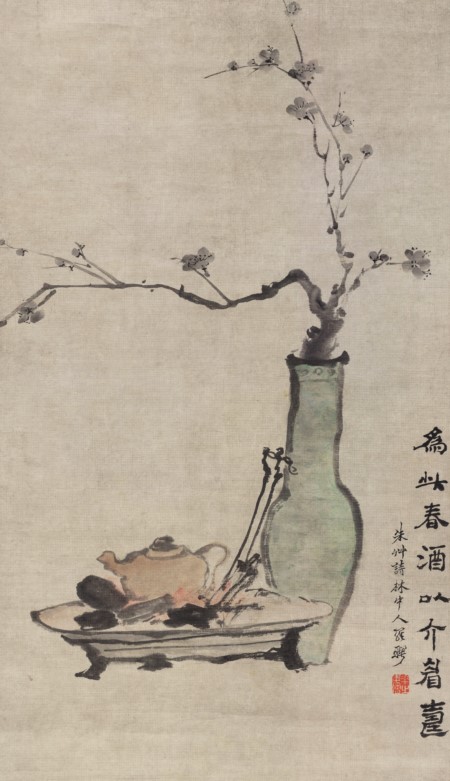 為此春酒以介眉壽
朱艸詩林中人羅聘